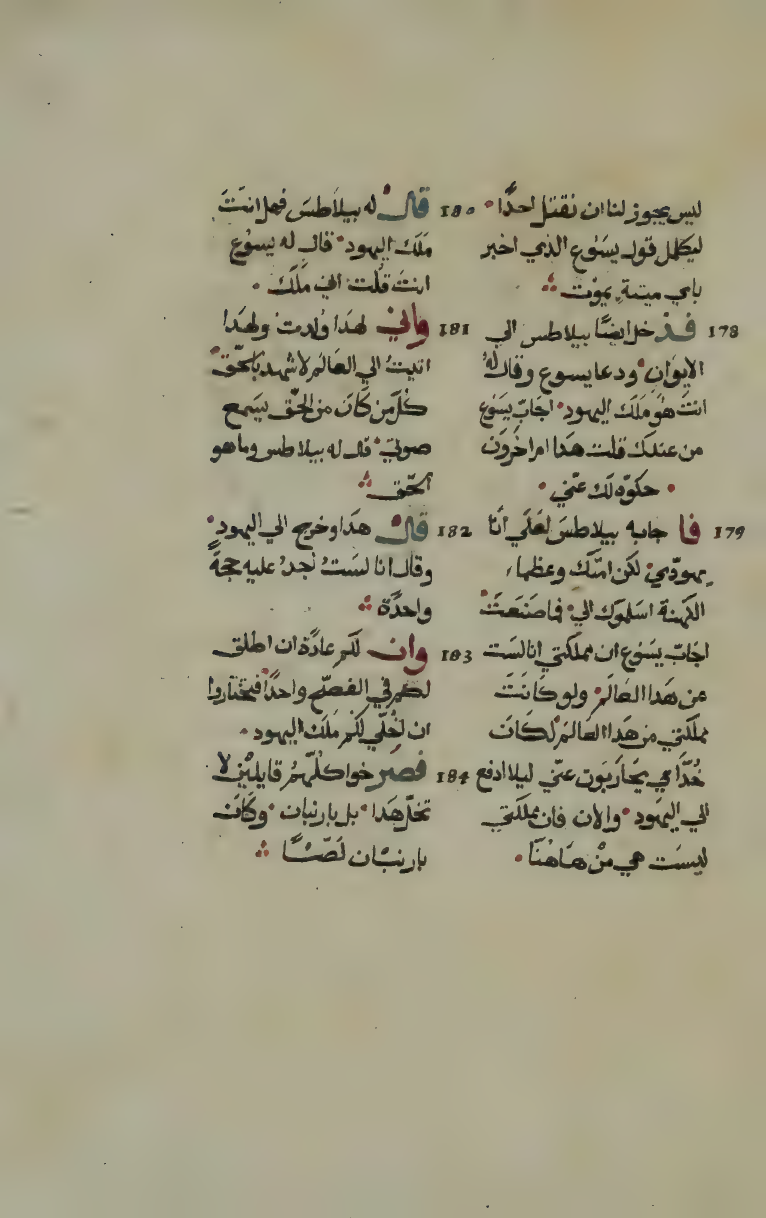 ليس يجوز لنا ان نقتل احدًا
ليكمل قول يسوع الذي اخبر
باي ميتة يموت
178 فدخل ايضًا بيلاطس الي
الايوان ودعا يسوع وقال له
انت هو ملك اليهود اجاب يسوع
من عندك قلت هذا ام اخرون
حكوه لك عني
179 فاجابه بيلاطس لعلي انا
يهودي لكن امتك وعظما
الكهنة اسلموك الي فما صنعت
اجاب يسوع ان مملكتي انا ليست
من هذا العالم ولو كانت
مملكتي من هذا العالم لكان
خدامي يحاربون عني ليلا ادفع
الي اليهود والان فان مملكتي
ليست هي من هاهنا
180 قال له بيلاطس فهل انت
ملك اليهود قال له يسوع
انت قلت اني ملك
181 واني لهذا ولدت ولهذا
اتيت الي العالم لاشهد بالحق
كل من كان من الحق يسمع
صوتي قال له بيلاطس وما هو
الحق
182 قال هذا وخرج الي اليهود
وقال انا لست اجد عليه حجة
واحدة
183 وان لكم عادة ان اطلق
لكم في الفصح واحدًا فتختاروا
ان اخلي لكم ملك اليهود
184 فصرخوا كلهم قايلين لا
تخل هذا بل بارنبان وكان
بارنبان لصًا